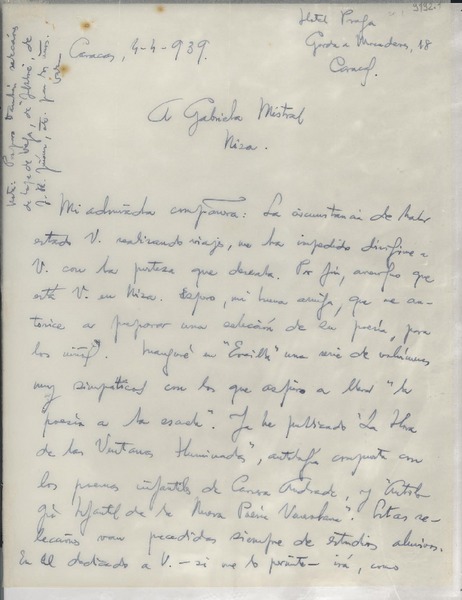 Hotel Praga
Gorda a Maderos, 18
Caracas.
Caracas, 4-4-939.
A Gabriela Mistral
Niza.
Mi admirada compañera: La circunstancia de haber
estado V. realizando viajes, me ha impedido dirigirme a
V. con la presteza que deseaba. Por fin, averiguo que
está V. en Niza. Espero, mi buena amiga, que me au-
torice a preparar una selección de su poesía, para
los niños. Inauguré en "Ercilla" una serie de volúmenes
muy simpáticos con los que aspiro a llevar "la
poesía a la escuela". Ya he publicado "La Hora
de las Ventanas Iluminadas", antología compuesta con
los poemas infantiles de Carrera Andrade, y "Antolo-
gía Infantil de la Nueva Poesía Venezolana". Estas se-
lecciones van precedidas siempre de estudios alusivos.
En el dedicado a V. - si me lo permite - irá, como
Nota: Preparo también selecciones
de Lope de Vega, de
J. R. Jiménez, etc. para los niños.